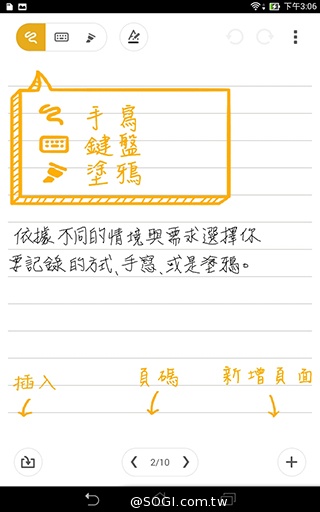 下午3:06
手寫
鍵盤
塗鴉
依據不同的情境與需求選擇你
要記錄的方式、手寫、或是塗鴉。
插入 頁碼 新增頁面
2/10
@SOGI.com.tw